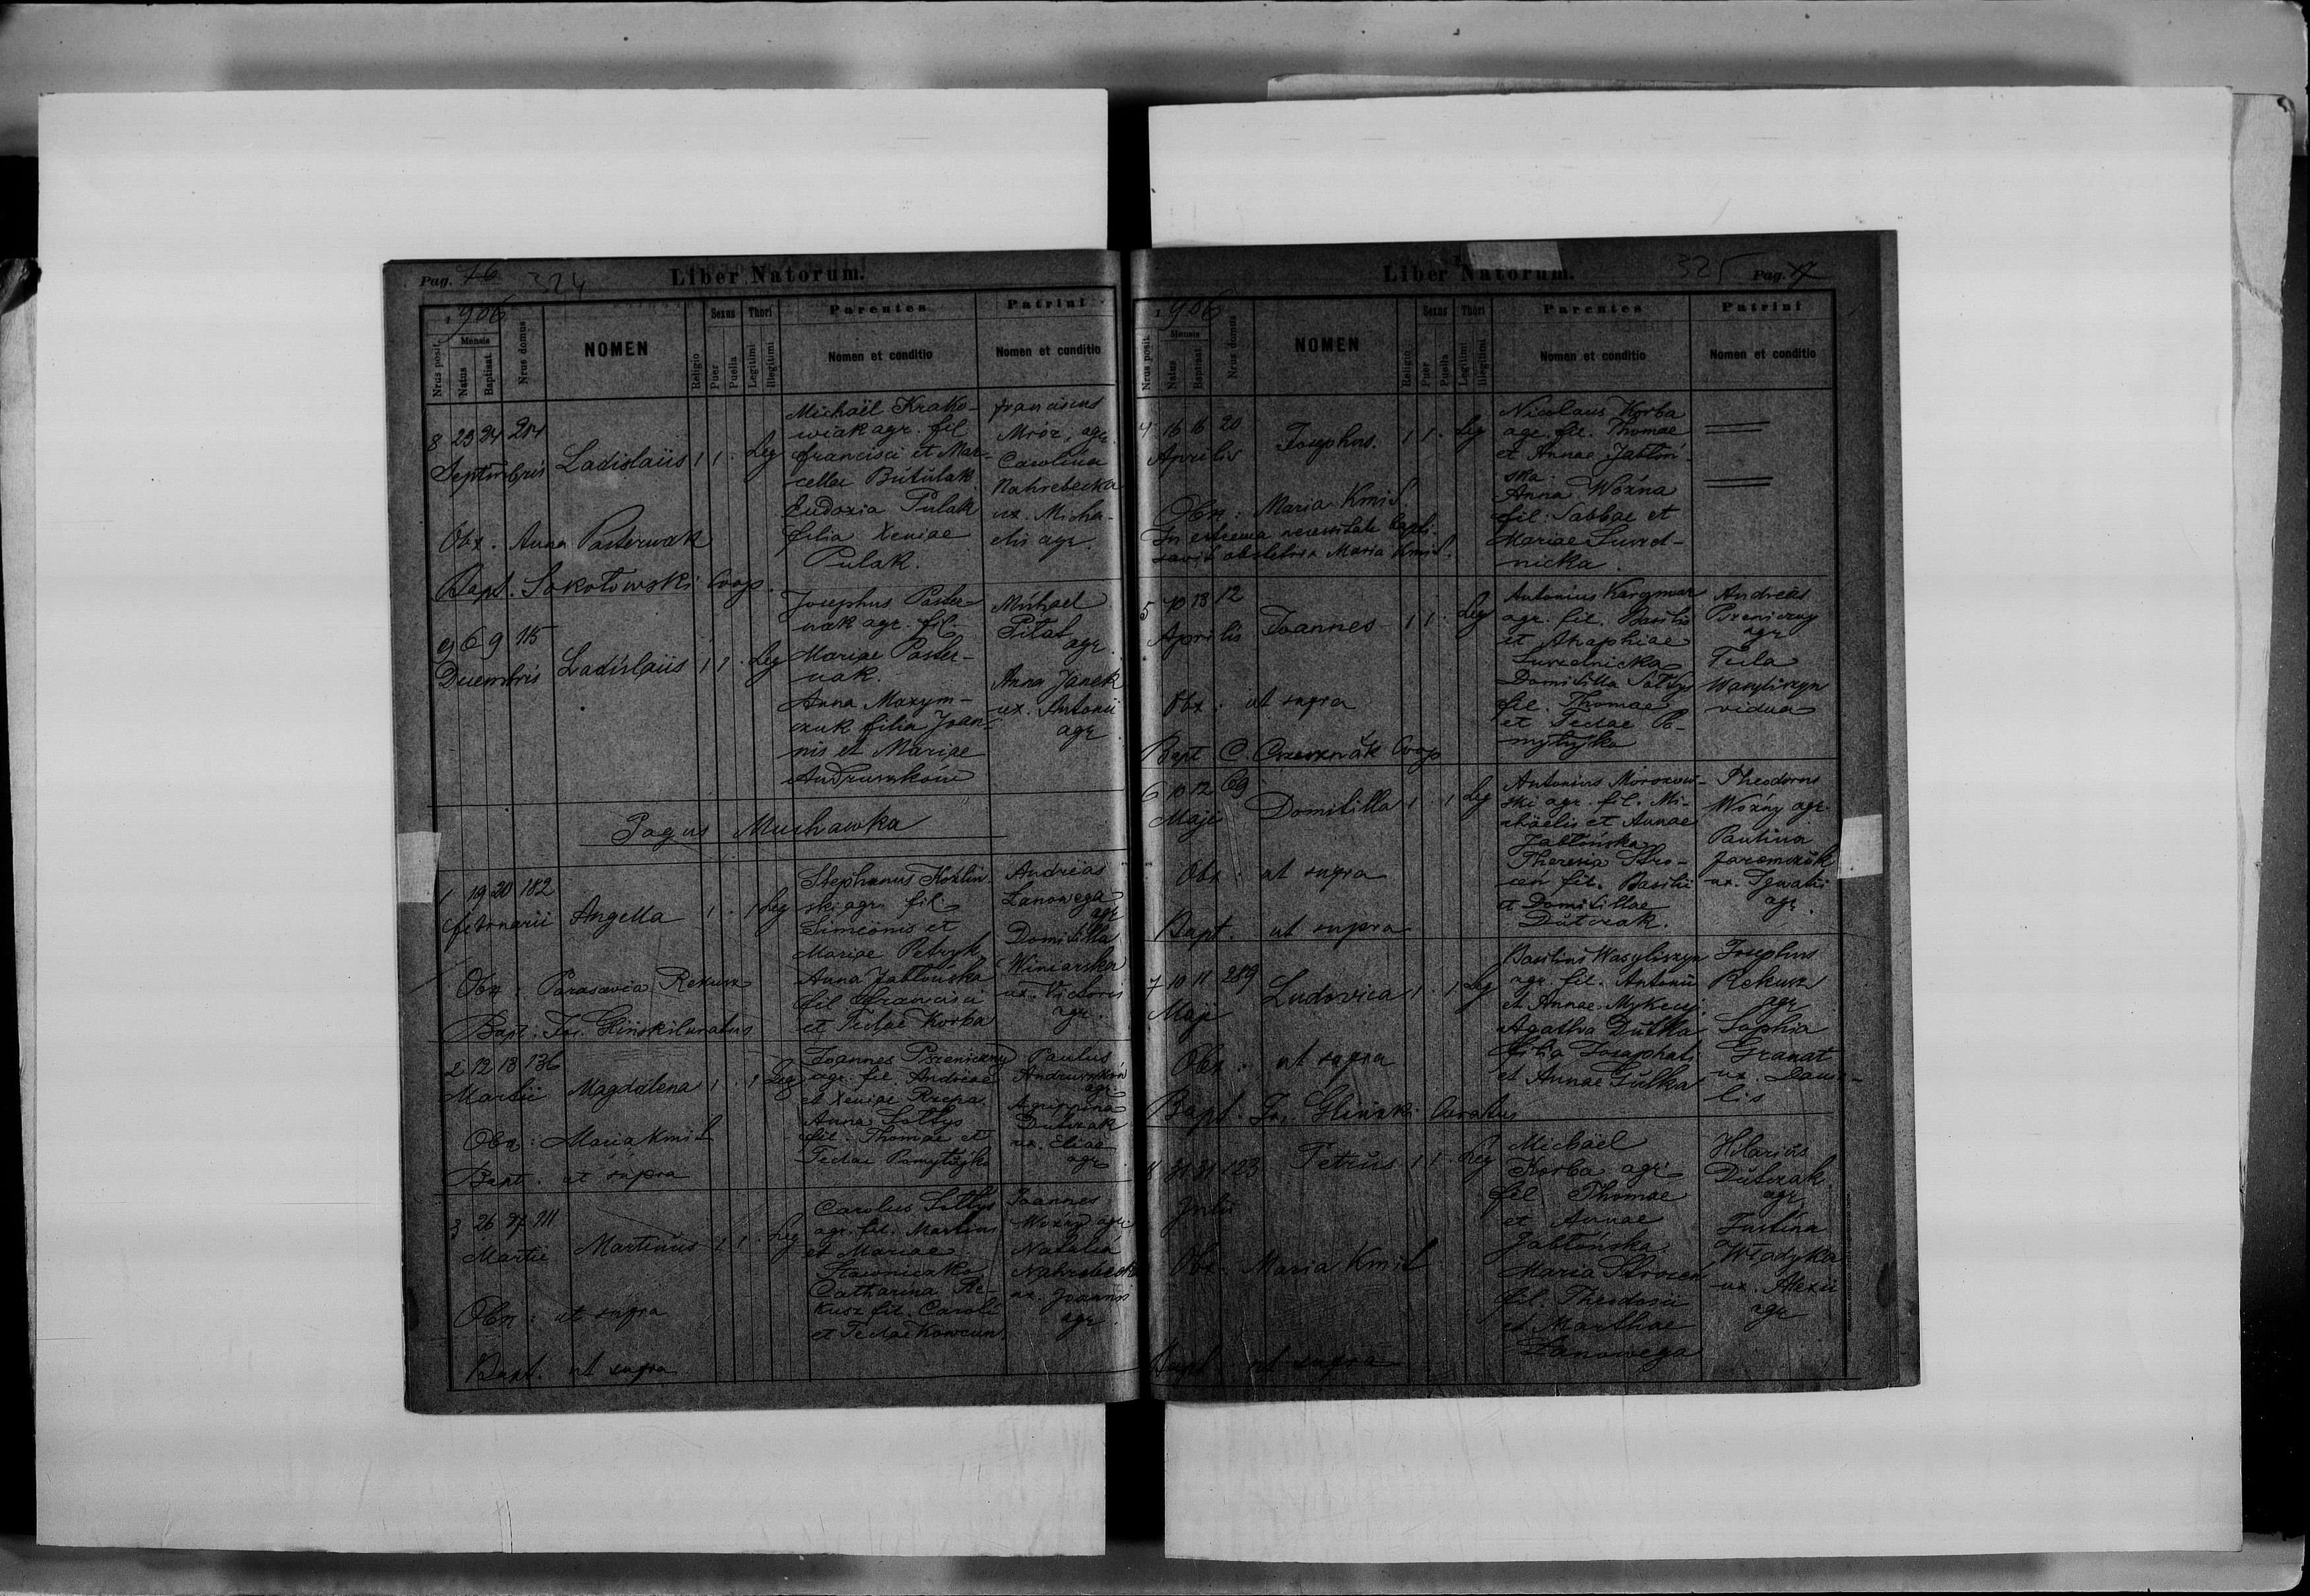 Pag. 76 324 Liber Natorum.
1906
Nrus posit. Mensis Natus Baptisat. Nrus domus NOMEN Religio Sexus Puer Puella Thori Legitimi Illegitimi Parentes Nomen et conditio Patrini Nomen et conditio
8 23 24 204 Septembris Ladislaüs 1 1 . Leg
Michaël Krako-
wiak agr. fil
Francisci et Mar-
cellae Butulak
Eudoxia Pulak
filia Xeniae
Pulak.
Franciscus
Mróz, agr.
Carolina
Nahrebecka
ux. Micha-
elis agr.
Obx. Anna Pasternak
Bapt. Sokołowski Coop.
9 6 9 115 Decembris Ladislaüs 1 1 . Leg
Josephus Paster-
nak agr. fil.
Mariae Paster-
nak.
Anna Maxym-
czuk filia Joan-
nis et Mariae
Andruszków
Michael
Pitat
agr.
Anna Janek
ux. Antonii
agr.
Pagus Muchawka
1 19 20 182 Februarii Angella 1 . 1 Leg
Stephanus Kozlin-
ski agr. fil.
Simeonis et
Mariae Petryk
Anna Jabłońska
fil Francisci
et Teclae Korba
Andreas
Lanowega
agr
Domitilla
Winiarska
ux. Victoris
agr.
Obx: Parascevia Rekusz
Bapt. Jos. Gliński Curatus
2 12 13 136 Martii Magdalena 1 . 1 Leg
Joannes Pszeniczny
agr. fil. Andreae
et Xeniae Rzepa.
Anna Sołtys
fil. Thomae et
Teclae Pomytajko
Paulus
Andruszków
agr.
Agrippina
Dutczak
ux. Eliae
agr
Obx: Maria Kmit
Bapt. ut supra
3 26 27 211 Martii Martinus 1 1 . Leg
Carolus Sołtys
agr. fil. Martini
et Mariae
Sławniczka
Catharina Re-
kusz fil. Caroli
et Teclae Kowcun
Joannes
Wozny agr.
Natalia
Nahrebecka
ux. Joannis
agr.
Obx: ut supra
Bapt. ut supra
Liber Natorum. 325 Pag. 77
1906
Nrus posit. Mensis Natus Baptisat. Nrus domus NOMEN Religio Sexus Puer Puella Thori Legitimi Illegitimi Parentes Nomen et conditio Patrini Nomen et conditio
4 16 16 20 Aprilis Josephus. 1 1 . Leg
Nicolaus Korba
agr. fil. Thomae
et Annae Jabłoń-
ska.
Anna Woźna
fil. Sabbae et
Mariae
nicka.
Obx: Maria Kmit
In extrema necessitate bapti-
zavit obstetrix Maria Kmit.
5 10 13 12 Aprilis Joannes 1 1 . Leg
Antonius
agr. fil. Basilii
et Anaphiae
Domitilla Sołtys
fil. Thomae
et Teclae Po-
mytajko
Andreas
Pzeniczny
agr
Tecla
Wasyliszyn
vidua
Obx: ut supra
Bapt C. Coop
6 10 12 69 Maji Domitilla 1 . 1 Leg
Antonius Morozow-
ski agr. fil. Mi-
chäelis et Annae
Jabłońska
Theresia Stro-
cen fil. Basilii
et Domitillae
Dutczak.
Theodorus
Woźny agr.
Paulina
Jaremczuk
ux. Ignatii
agr.
Obx: ut supra
Bapt. ut supra
7 10 11 289 Maji Ludovica 1 . 1 Leg
Basilius Wasyliszyn
agr. fil. Antonii
et Annae Mykecej
Agatha Dutka
filia Josaphati
et Annae Gulka
Josephus
Rekusz
agr
Sophia
Granat
ux. Dani-
lis
Obx: ut supra
Bapt. Jos. Gliński Curatus
8 31 31 123 Julii Petrus 1 1 . Leg
Michaël
Korba agr.
fil Thomae
et Annae
Jabłońska.
Maria Strocen
fil. Theodosii
et Marthae
Lanowega
Hilarius
Dutczak
agr
Justina
Władyka
ux. Alexii
agr
Obx. Maria Kmit
Bapt. ut supra